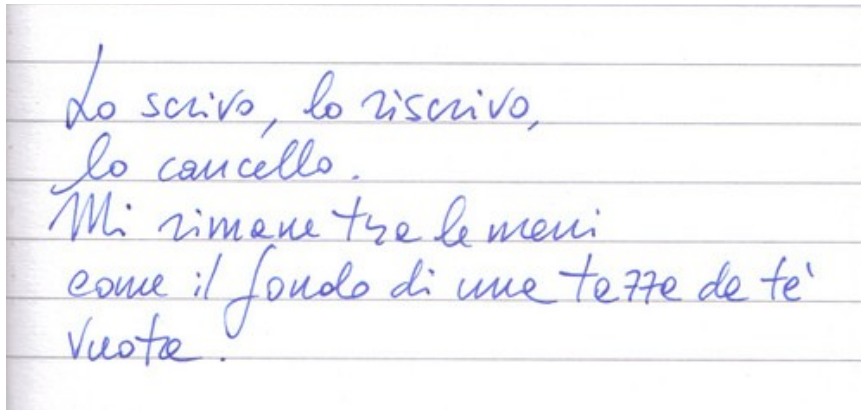 Lo scrivo, lo riscrivo,
lo cancello.
Mi rimane tra le mani
come il fondo di una tazza da tè
vuota.